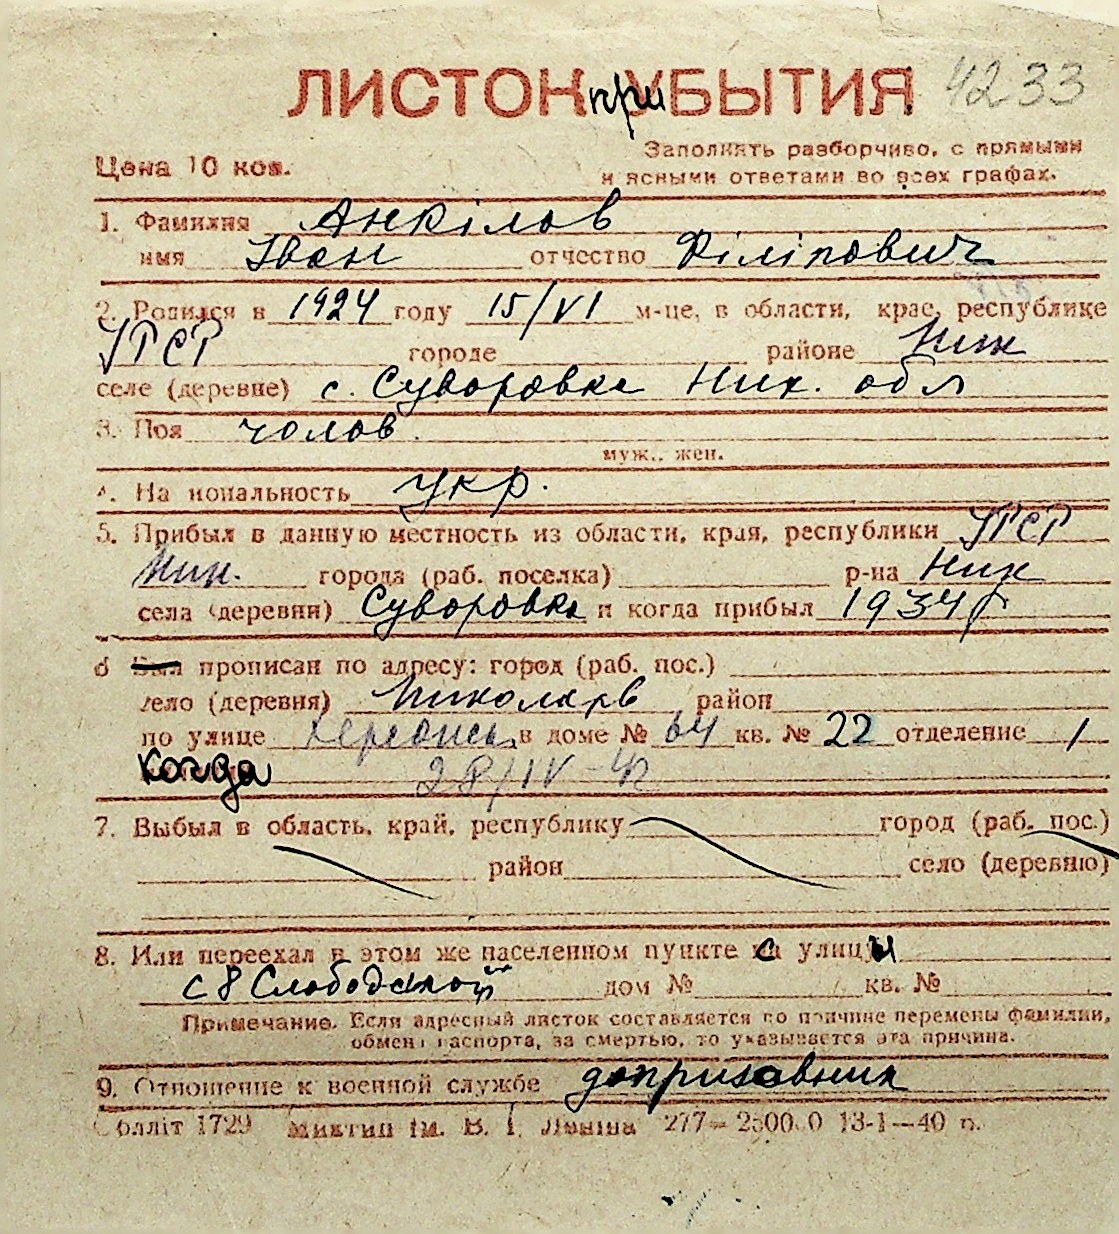 ЛИСТОК приБЫТИЯ 4233
Цена 10 коп.
Заполнять разборчиво, с прямыми
и ясными ответами во всех графах.
1. Фамилия Анкілов
имя Іван отчество Філіпович
2. Родился в 1924 году 15/VI м-це, в области, крае, республике
УРСР городе районе Ник
селе (деревне) с. Суворовка Ник. обл
3. Пол чолов.
муж., жен.
4. Национальность укр.
5. Прибыл в данную местность из области, края, республики УРСР
Ник. города (раб. поселка) р-на Ник
села (деревни) Суворовка и когда прибыл 1934 г
6 прописан по адресу: город (раб. пос.)
село (деревня) Николаев район
по улице в доме № 64 кв. № 22 отделение 1
когда 28/IV-41
7. Выбыл в область, край, республику город (раб. пос.)
район село (деревню)
8. Или переехал в этом же населенном пункте с улицы
с 8 Слободской дом № кв. №
Примечание. Если адресный листок составляется по причине перемены фамилии,
обмена паспорта, за смертью, то указывается эта причина.
9. Отношение к военной службе допризовник
Облліт 1729 Миктип ім. В. І. Леніна 277— 13-1—40 п.